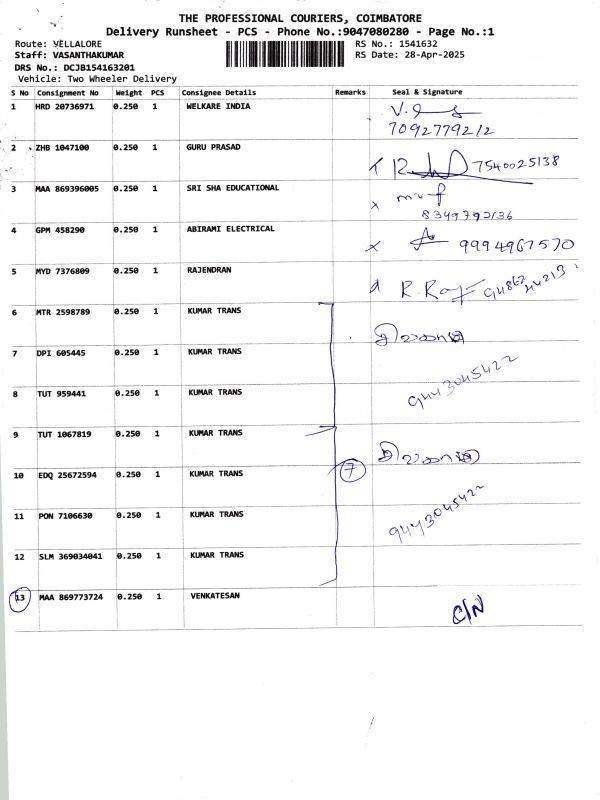 THE PROFESSIONAL COURIERS, COIMBATORE
Delivery Runsheet - PCS - Phone No.:9047080280 - Page No.:1
Route: VELLALORE RS No.: 1541632
Staff: VASANTHAKUMAR RS Date: 28-Apr-2025
DRS No.: DCJB154163201
Vehicle: Two Wheeler Delivery
S No Consignment No Weight PCS Consignee Details Remarks Seal & Signature
1 HRD 20736971 0.250 1 WELKARE INDIA
7092779212
2 ZHB 1047100 0.250 1 GURU PRASAD
7540025138
3 MAA 869396005 0.250 1 SRI SHA EDUCATIONAL
8349792136
4 GPM 458290 0.250 1 ABIRAMI ELECTRICAL
9994967570
5 MYD 7376809 0.250 1 RAJENDRAN
R. Raj 9486244213
6 MTR 2598789 0.250 1 KUMAR TRANS
7 DPI 605445 0.250 1 KUMAR TRANS
8 TUT 959441 0.250 1 KUMAR TRANS
9443045422
9 TUT 1067819 0.250 1 KUMAR TRANS
10 EDQ 25672594 0.250 1 KUMAR TRANS 7
11 PON 7106630 0.250 1 KUMAR TRANS
9443045422
12 SLM 369034041 0.250 1 KUMAR TRANS
13 MAA 869773724 0.250 1 VENKATESAN
C/N